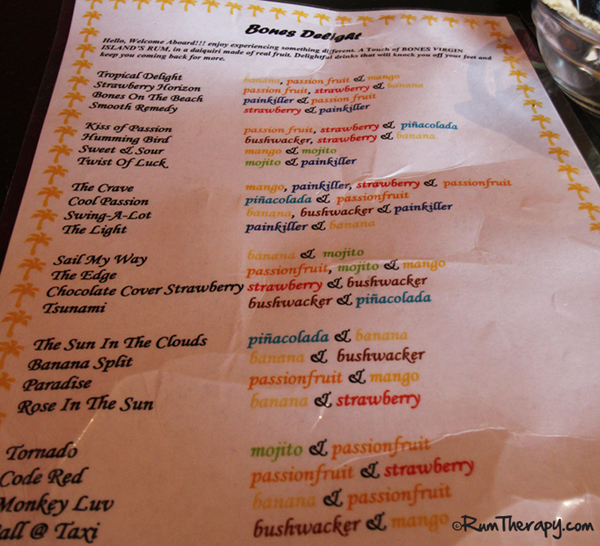 Bones Delight
Hello, Welcome Aboard!!! enjoy experiencing something different. A Touch of BONES VIRGIN
ISLAND'S RUM, in a daiquiri made of real fruit. Delightful drinks that will knock you off your feet and
keep you coming back for more.
Tropical Delight banana, passion fruit & mango
Strawberry Horizon passion fruit, strawberry & banana
Bones On The Beach painkiller & passion fruit
Smooth Remedy strawberry & painkiller
Kiss of Passion passion fruit, strawberry & piñacolada
Humming Bird bushwacker, strawberry & banana
Sweet & Sour mango & mojito
Twist Of Luck mojito & painkiller
The Crave mango, painkiller, strawberry & passionfruit
Cool Passion piñacolada & passionfruit
Swing-A-Lot banana, bushwacker & painkiller
The Light painkiller & banana
Sail My Way banana & mojito
The Edge passionfruit, mojito & mango
Chocolate Cover Strawberry strawberry & bushwacker
Tsunami bushwacker & piñacolada
The Sun In The Clouds piñacolada & banana
Banana Split banana & bushwacker
Paradise passionfruit & mango
Rose In The Sun banana & strawberry
Tornado mojito & passionfruit
Code Red passionfruit & strawberry
Monkey Luv banana & passionfruit
all @ Taxi bushwacker & mango
©RumTherapy.com